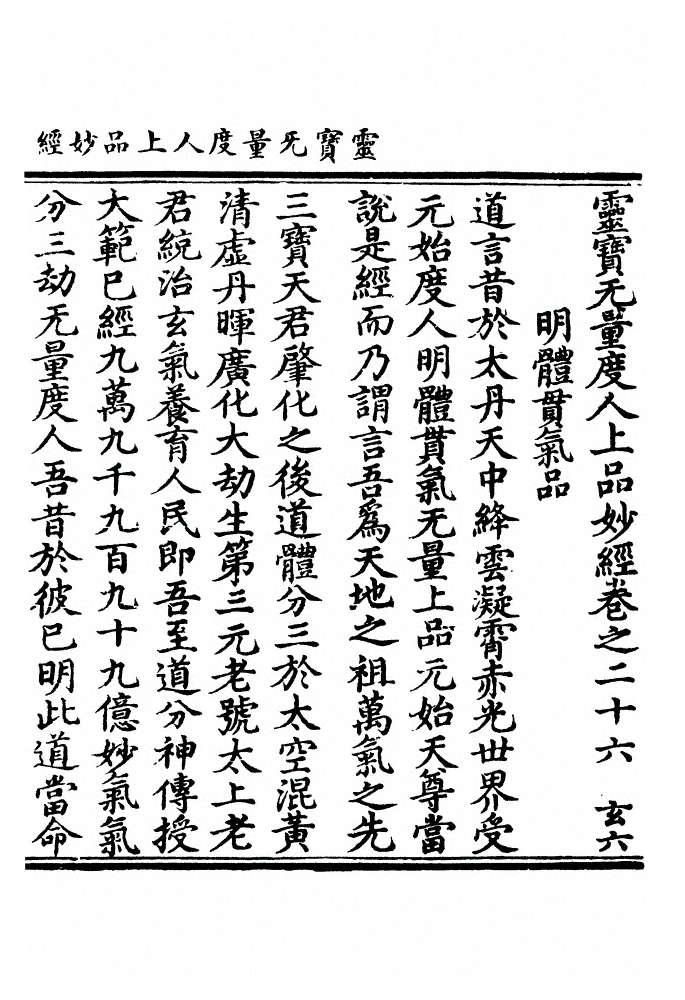 靈寶旡量度人上品妙經
靈寶无量度人上品妙經卷之二十六 玄六
明體貫氣品
道言昔於太丹天中絳雲凝霄赤光世界受
元始度人明體貫氣无量上品元始天尊當
說是經而乃謂言吾爲天地之祖萬氣之先
三寶天君肇化之後道體分三於太空混黃
清虛丹暉廣化大劫生第三元老號太上老
君統治玄氣養育人民即吾至道分神傳授
大範巳經九萬九千九百九十九億妙氣氣
分三劫无量度人吾昔於彼巳明此道當命